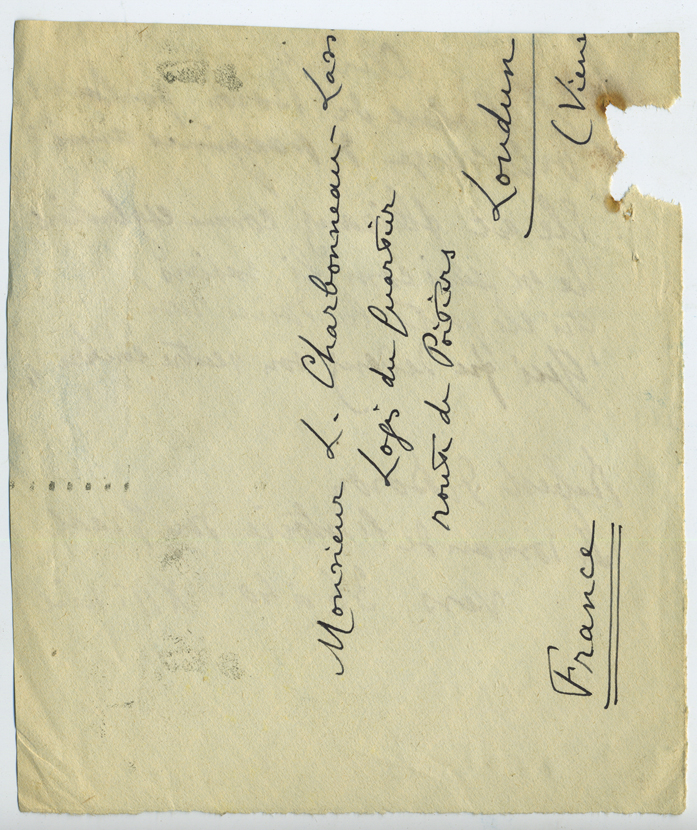 Monsieur L. Charbonneau-Lass
Logis du Quartier
route de Poitiers
Loudun
(Vien
France